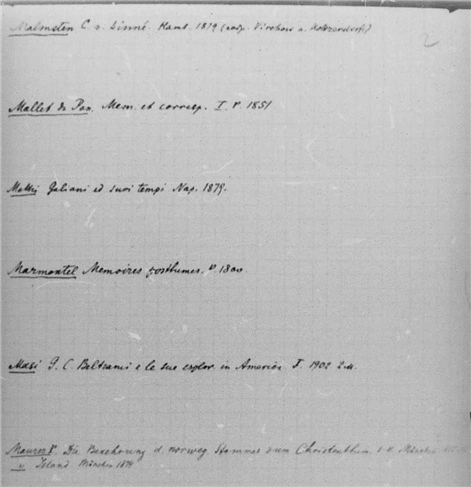 Malmsten C. v. Linné. Hamb. 1879 (
2
Mallet du Pan. Mem. et corresp. I. P. 1851
Mattei Galiani ed suoi tempi Nap. 1879.
Marmontel Memoires posthumes. P 1800.
Masi G. C. Beltrami e le sue esplor. in America F. 1902
Maurer K. Die Bekehrung d. norweg. Stammes zum Christenthum. München
" Island München 1874